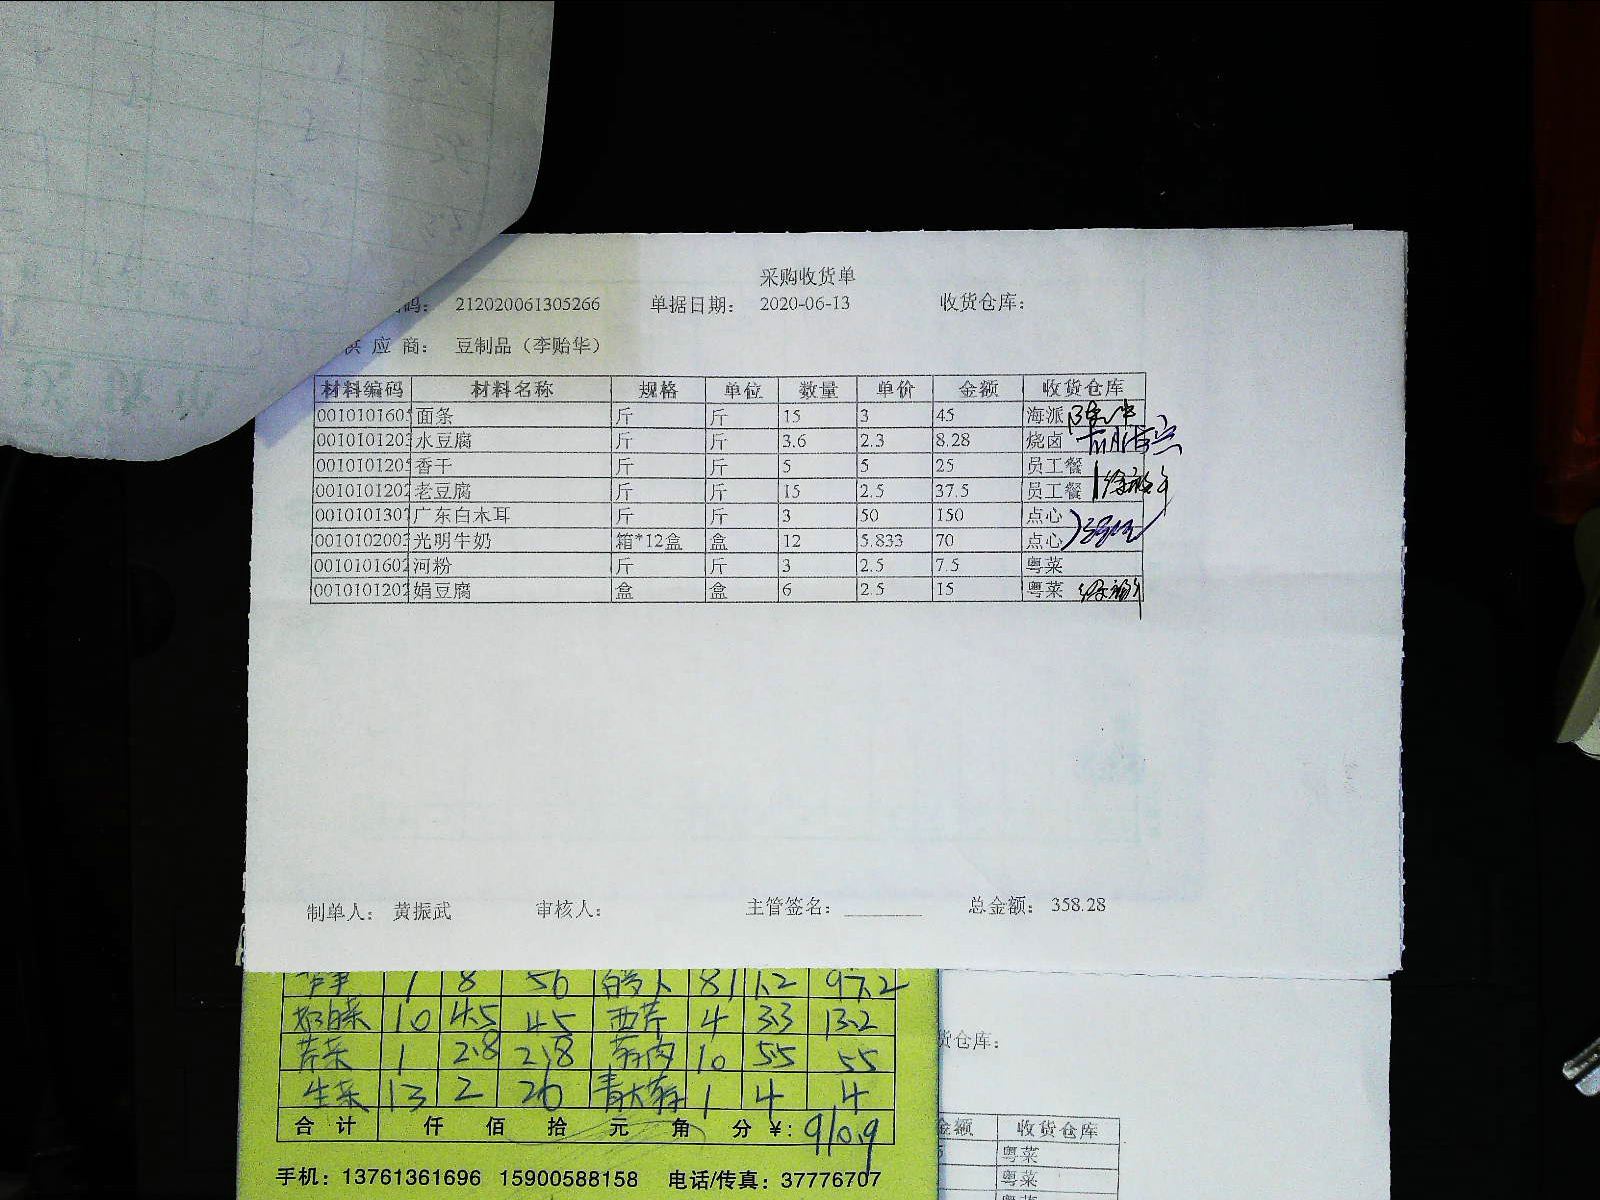 采购收货单
码： 212020061305266 单据日期： 2020-06-13 收货仓库：
供 应 商： 豆制品（李贻华）
材料编码 材料名称 规格 单位 数量 单价 金额 收货仓库
0010101605 面条 斤 斤 15 3 45 海派
0010101203 水豆腐 斤 斤 3.6 2.3 8.28 烧卤
0010101205 香干 斤 斤 5 5 25 员工餐
0010101202 老豆腐 斤 斤 15 2.5 37.5 员工餐
0010101307 广东白木耳 斤 斤 3 50 150 点心
0010102003 光明牛奶 箱*12盒 盒 12 5.833 70 点心
0010101602 河粉 斤 斤 3 2.5 7.5 粤菜
0010101202 娟豆腐 盒 盒 6 2.5 15 粤菜
制单人： 黄振武 审核人： 主管签名： 总金额： 358.28
8 56 81 1.2 97.2
奶白菜 10 4.5 45 西芹 4 3.3 13.2
芹菜 1 2.8 2.8 10 5.5 55
生菜 13 2 26 1 4 4
合 计 仟 佰 拾 元 角 分 ¥: 910.9
手机：13761361696 15900588158 电话/传真：37776707
货仓库：
金额 收货仓库
粤菜
粤菜